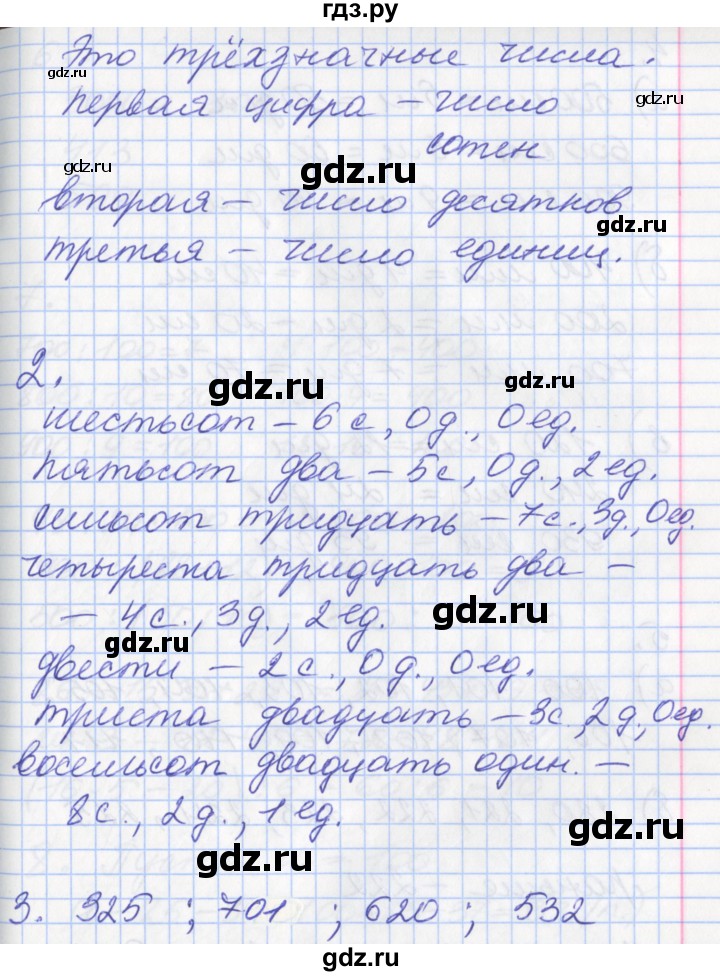 гдз.ру
Это трёхзначные числа.
первая цифра – число
сотен
вторая – число десятков
третья – число единиц.
2.
шестьсот – 6 с., 0 д., 0 ед.
пятьсот два – 5с, 0 д., 2 ед.
семьсот тридцать – 7с., 3д, 0 ед.
четыреста тридцать два –
– 4с., 3д., 2 ед.
двести – 2 с., 0 д., 0 ед.
триста двадцать – 3с, 2д, 0 ед.
восемьсот двадцать один. –
8с., 2д., 1 ед.
3. 325 ; 701 ; 620 ; 532
gdz.ru
gdz.ru
gdz.ru
gdz.ru
gdz.ru
gdz.ru
gdz.ru
gdz.ru
gdz.ru
gdz.ru
gdz.ru
gdz.ru
gdz.ru